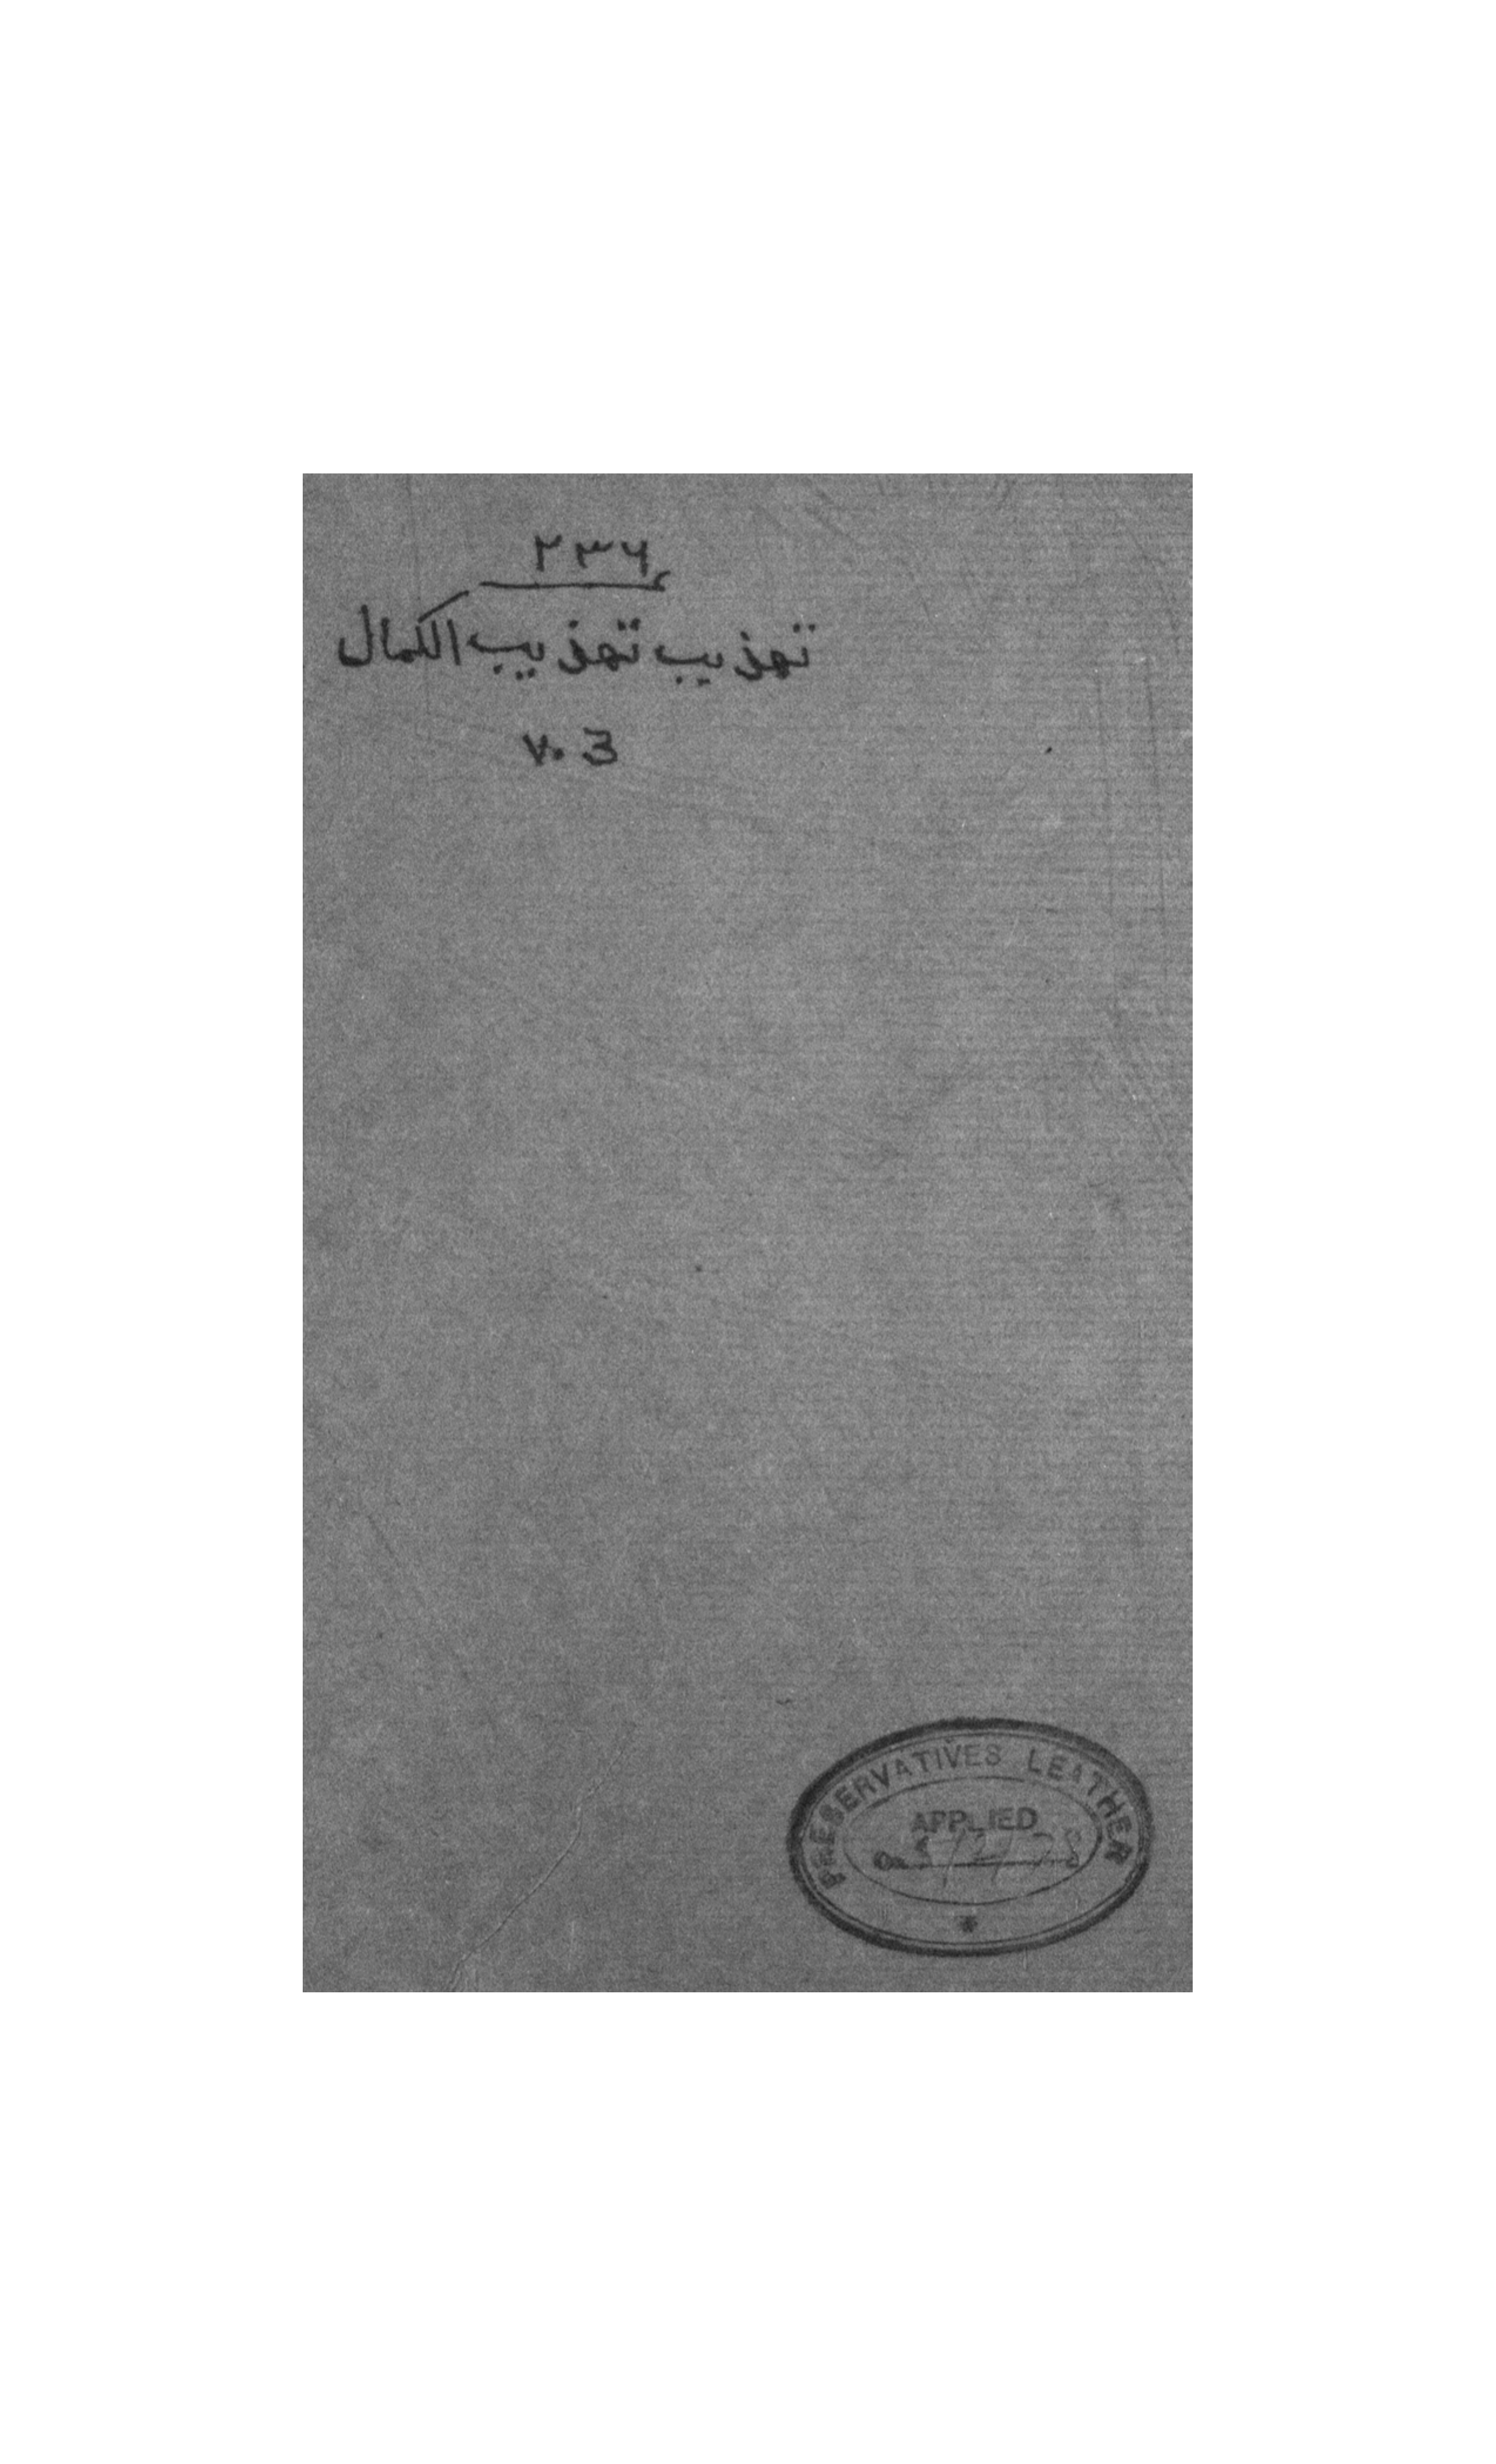 ٢٣٦
تهذيب تهذيب الكمال
٧٠3
PRESERVATIVES LEATHER
APPLIED
On